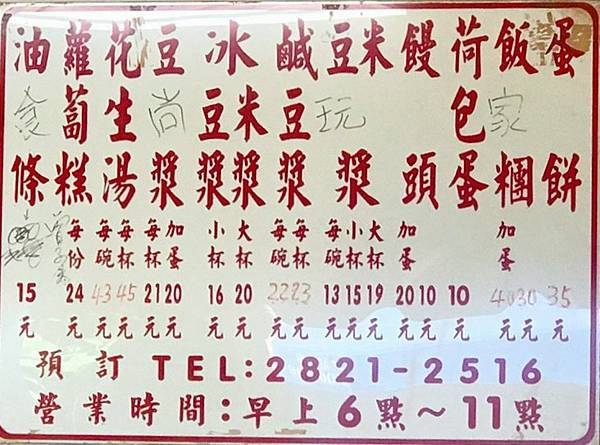 蛋餅 35元
飯糰 30元 加蛋 40元
荷包蛋 10元
饅頭 10元 加蛋 20元
米豆漿 大杯 19元 小杯 15元 每碗 13元
鹹豆漿 每碗 23元 每碗 22元
冰豆漿 米漿 大杯 20元 小杯 16元
豆漿 加蛋 20元 每杯 21元
花生湯 每杯 45元 每碗 43元
蘿蔔糕 每份 24元
油條 15元
家
玩
尚
食
預訂TEL:2821-2516
營業時間:早上6點～11點